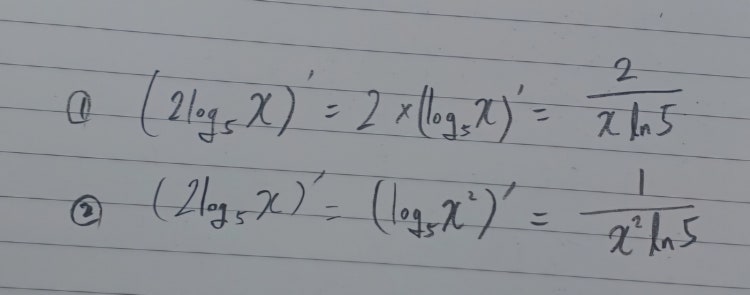 ① (2log₅x)' = 2×(log₅x)' = 2/(x ln5)
② (2log₅x)' = (log₅x²)' = 1/(x² ln5)